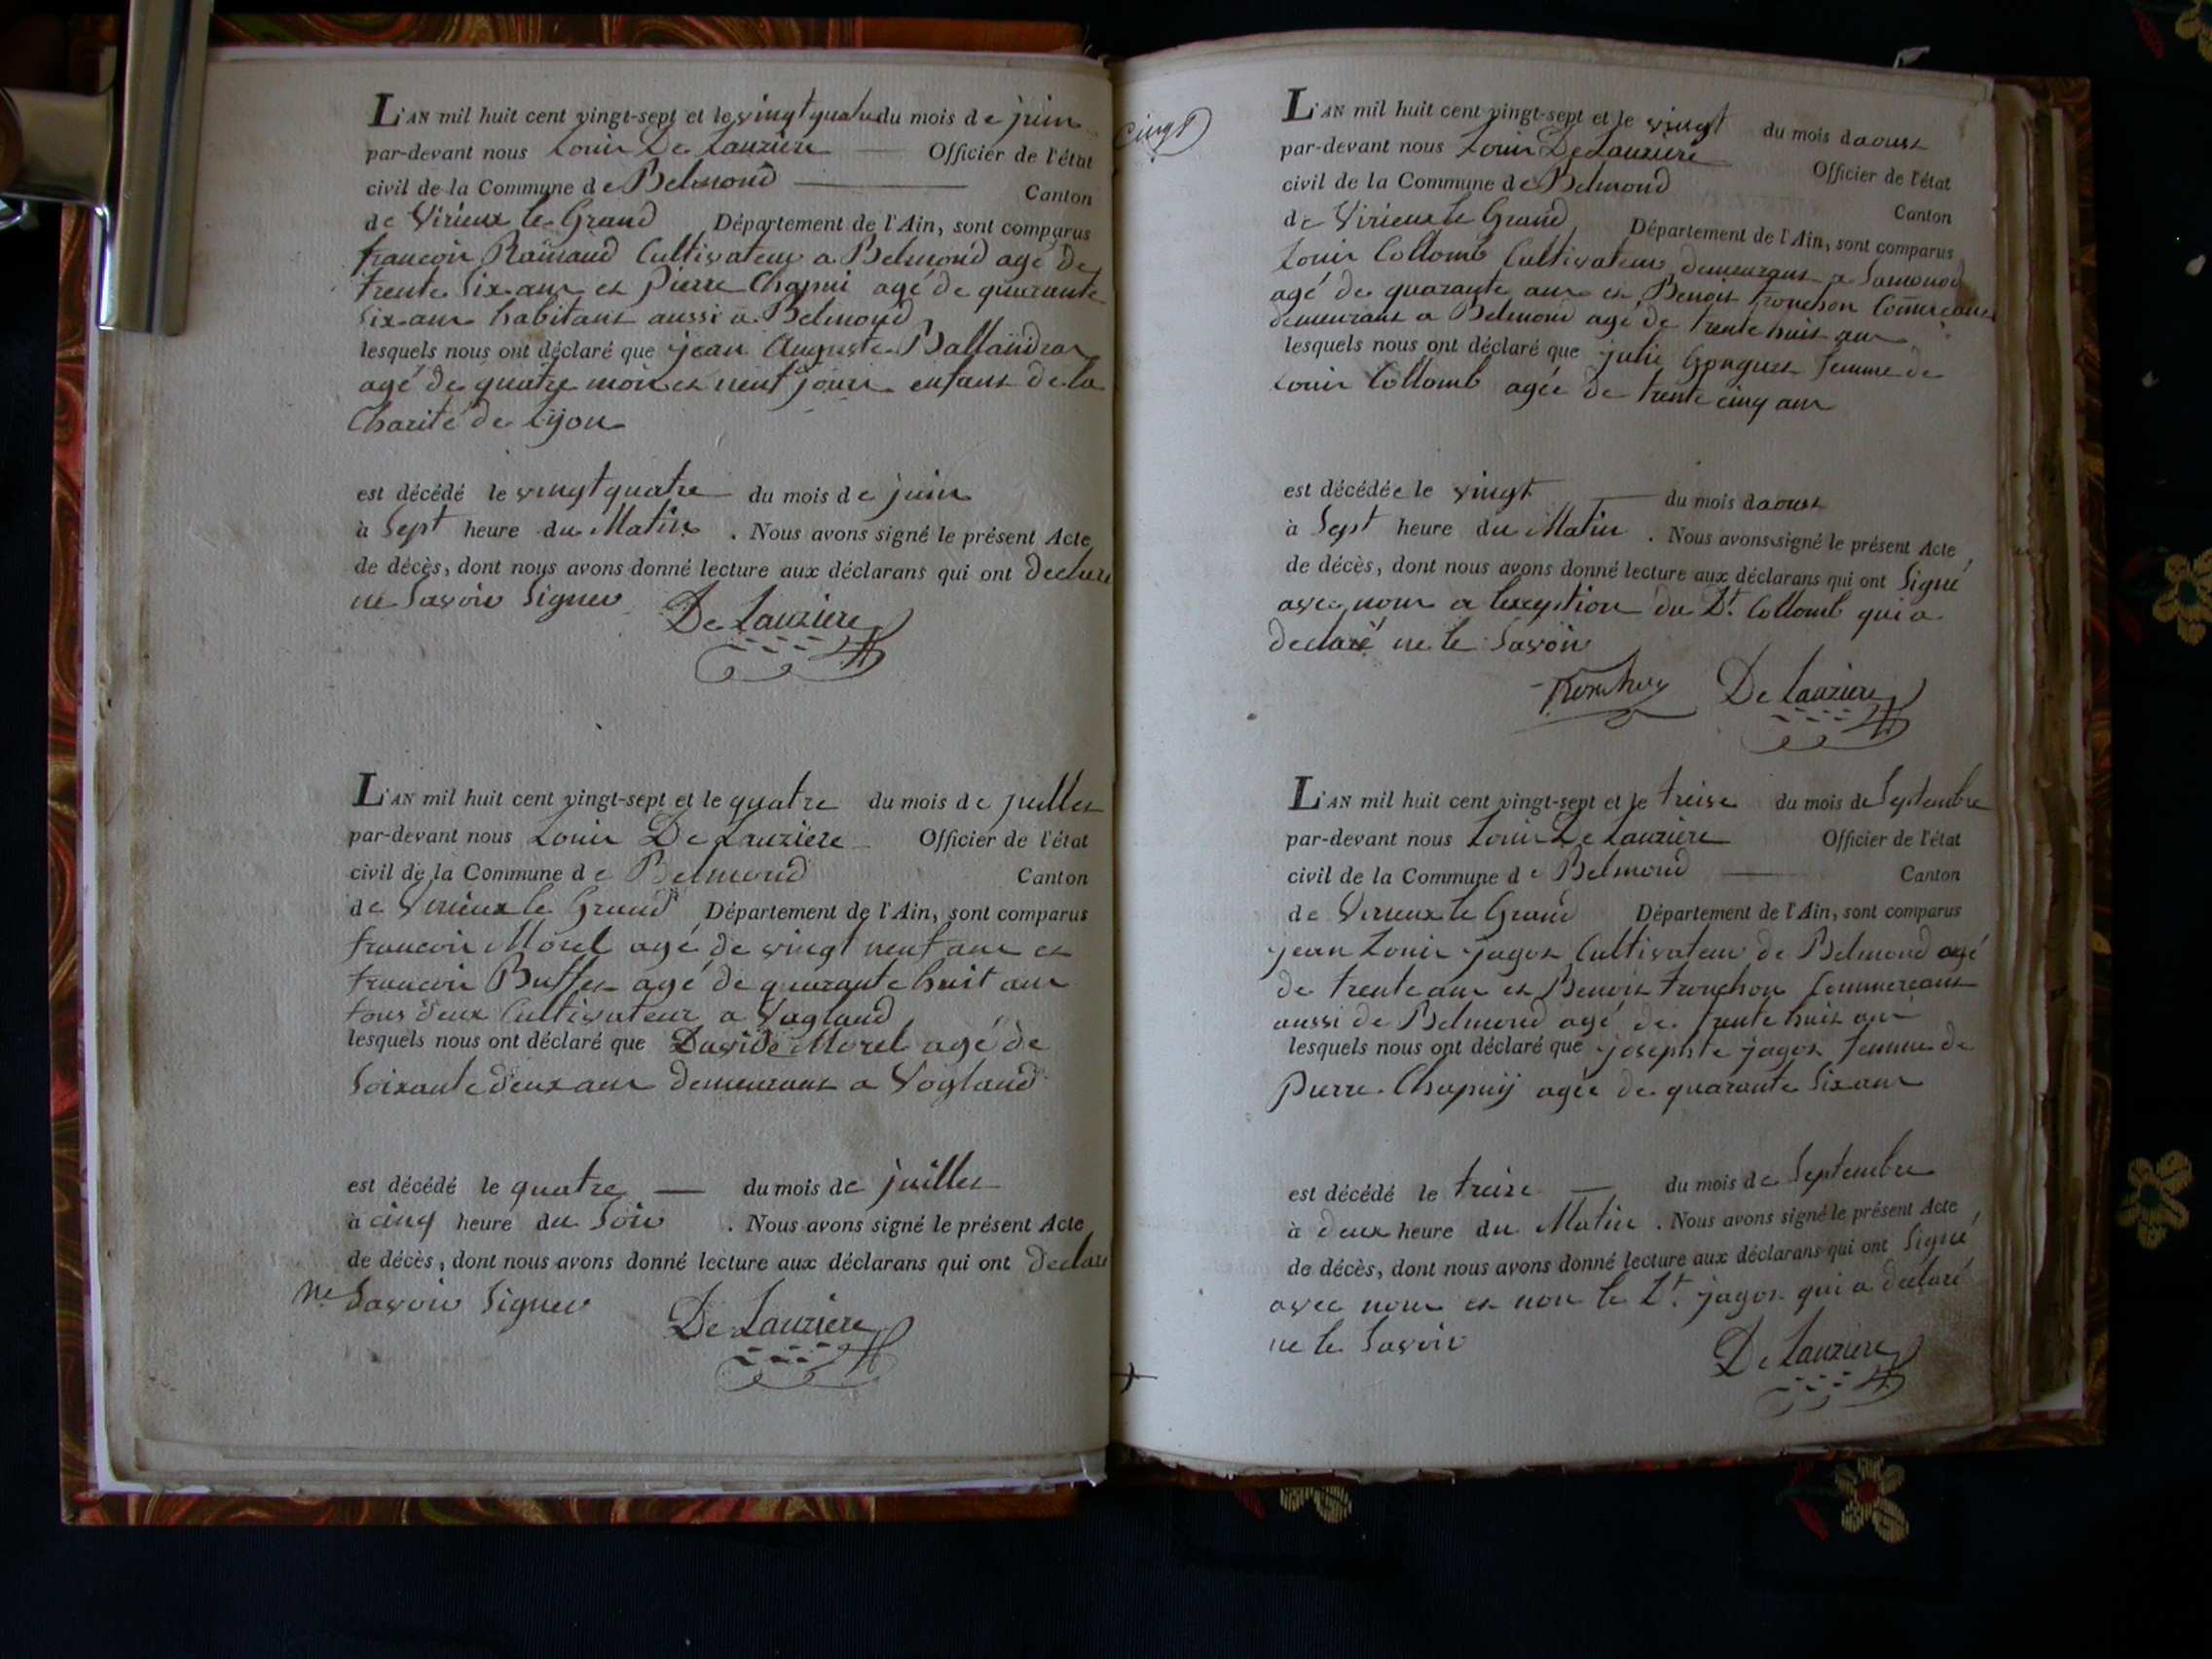 L'AN mil huit cent vingt-sept et le vingt quatre du mois de juin
par-devant nous Louis De Lauziere Officier de l'état
civil de la Commune de Belmond Canton
de Virieux le Grand Département de l'Ain, sont comparus
francois Rainaud Cultivateur a Belmond agé de
trente six ans et pierre Chapui agé de quarante
six ans habitant aussi a Belmond
lesquels nous ont déclaré que jean Auguste
agé de quatre mois et neuf jours enfant de la
Charité de Lyon
est décédé le vingt quatre du mois de juin
à Sept heure du Matin . Nous avons signé le présent Acte
de décès, dont nous avons donné lecture aux déclarans qui ont declare
ne Savoir Signer De Lauziere
L'AN mil huit cent vingt-sept et le quatre du mois de juillet
par-devant nous Louis De Lauziere Officier de l'état
civil de la Commune de Belmond Canton
de Virieux le Grand Département de l'Ain, sont comparus
francois Morel agé de vingt neuf ans et
francois Buffet agé de quarante huit ans
tous deux Cultivateur a Vogland
lesquels nous ont déclaré que Davide Morel agé de
Soixante deux ans demeurant a Vogland
est décédé le quatre du mois de juillet
à cinq heure du Soir . Nous avons signé le présent Acte
de décès, dont nous avons donné lecture aux déclarans qui ont declare
ne Savoir Signer De Lauziere
cinq
L'AN mil huit cent vingt-sept et le vingt du mois daoust
par-devant nous Louis De Lauziere Officier de l'état
civil de la Commune de Belmond Canton
de Virieux le Grand Département de l'Ain, sont comparus
Louis Collomb Cultivateur demeurant a
agé de quarante ans et Benoit tronchon Commercant
demeurant a Belmond agé de trente huit ans
lesquels nous ont déclaré que julie femme de
Louis Collomb agée de trente cinq ans
est décédée le vingt du mois daoust
à Sept heure du Matin . Nous avons signé le présent Acte
de décès, dont nous avons donné lecture aux déclarans qui ont Signé
avec nous a lexception du Dt. Collomb qui a
declaré ne le Savoir
Tronchon De Lauziere
L'AN mil huit cent vingt-sept et le treise du mois de Septembre
par-devant nous Louis De Lauziere Officier de l'état
civil de la Commune de Belmond Canton
de Virieux le Grand Département de l'Ain, sont comparus
jean Louis jagot Cultivateur de Belmond agé
de trente ans et Benoit tronchon Commercant
aussi de Belmond agé de trente huit ans
lesquels nous ont déclaré que josephte jagot femme de
pierre Chapuij agée de quarante Six ans
est décédé le treise du mois de Septembre
à deux heure du Matin . Nous avons signé le présent Acte
de décès, dont nous avons donné lecture aux déclarans qui ont Signé
avec nous et non le Dt. jagot qui a declaré
ne le Savoir De Lauziere